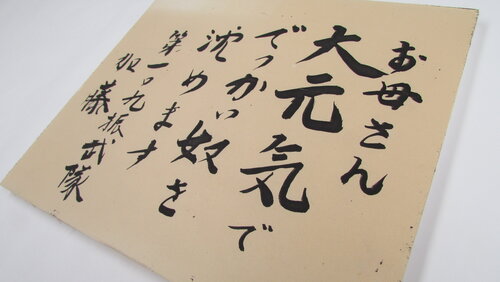 お母さん
大元気で
でっかい奴を
沈めます
第一〇九振武隊